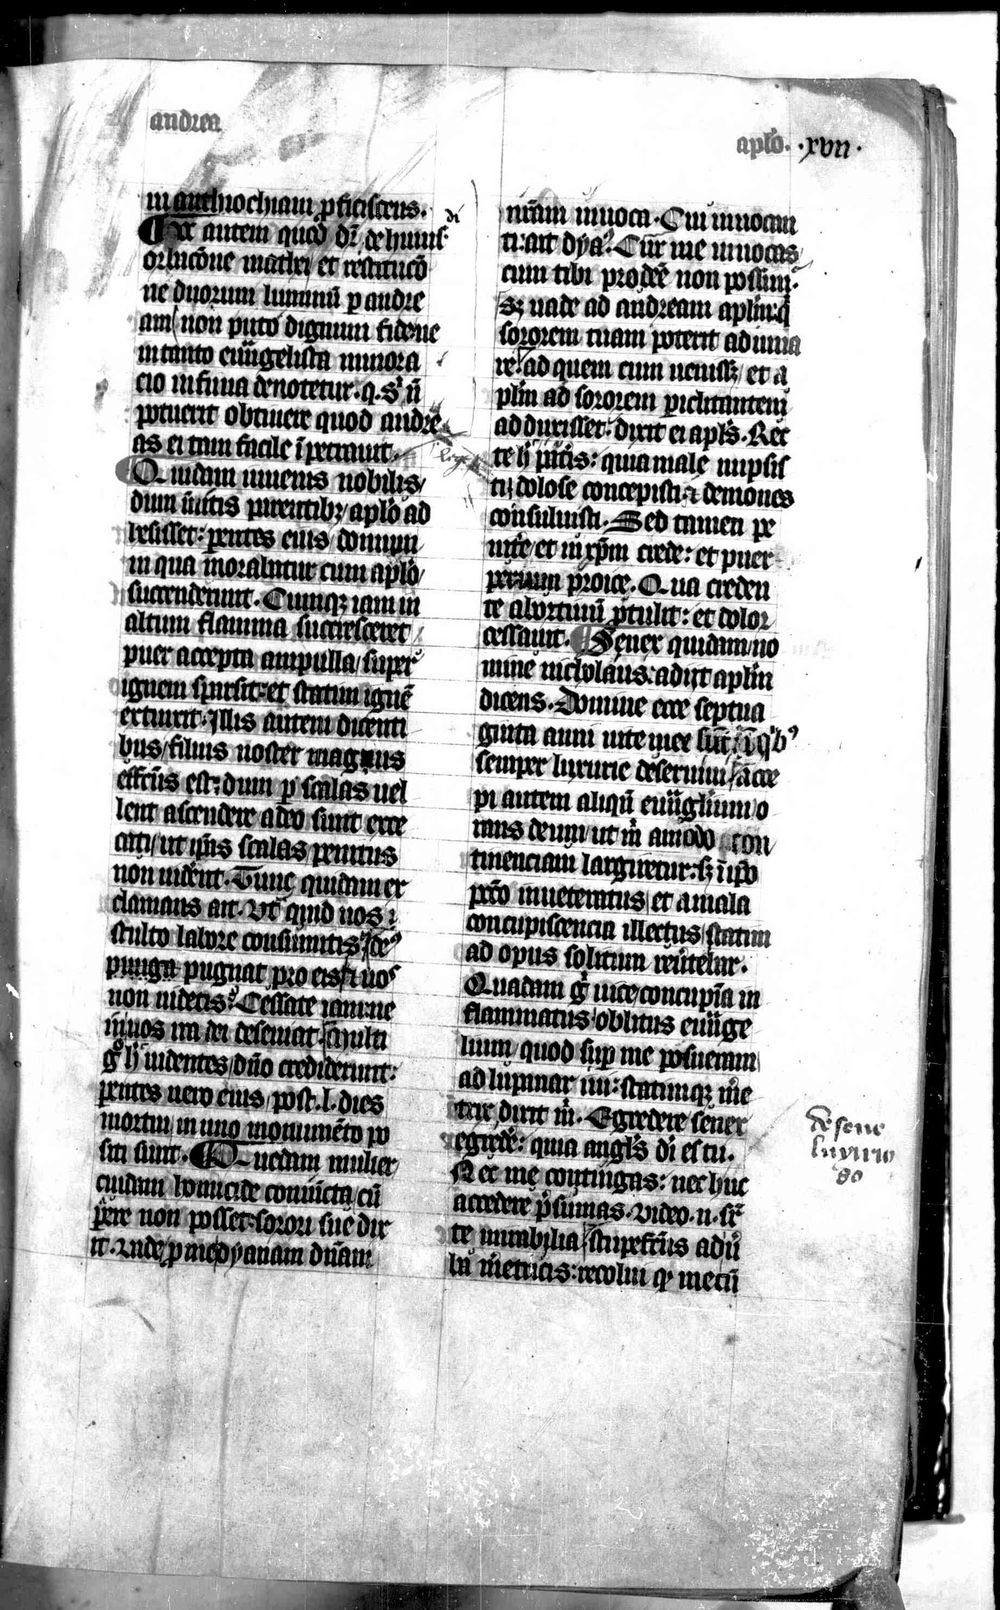 andrea
aplo. .xvii.
in anthiochiam proficiscens.
Hec autem quod dr̄ de huius di
orbacōne mathei et restitucō
ne duorum luminū p andre
am non puto dignum fide ne
in tanto euūgelista minora
cio infima denotetur. q. s.
potuerit obtinere quod andre
as ei tam facile īpetrauit.
Quidam iuuenis nobilis
dum īuitis parentibꝫ aplō ad
hesisset: parentes eius domum
in qua morabatur cum aplō
succenderunt. Cumqꝫ iam in
altum flamma succresceret
puer accepta ampulla super
ignem sparsit: et statim ignē
extinxit. Illis autem dicenti
bus filius noster magus
effectus est: dum p scalas uel
lent ascendere adeo sunt exce
cati ut ip̄as scalas penitus
non uiderēt. Tunc quidam ex
clamans ait. Vt quid uos
stulto labore consumitis de⁹
pugnat pro eis et uos
non uidetis? Cessate iam: ne
in uos ira dei deseuiat. Multi
gͦ h̄ uidentes dn̄o crediderunt:
parentes uero eius post .l. dies
mortui in uno monumēto po
siti sunt. Quedam mulier
cuidam homicide coniūcta cū
parere non posset: sorori sue dix
it. Uade p me dyanam dn̄am
nr̄am inuoca. Cui inuocan
ti: ait dya? Cur me inuocas
cum tibi prodēe non possim.
sꝫ uade ad andream aplm̄: q̄
sororem tuam poterit adiuua
re. ad quem cum uenissꝫ et a
plm̄ ad sororem piclitantem
adduxisset: dixit ei apls̄. Rec
te h̄ pateris: quia male nupsis
ti dolose concepisti et demones
consuluisti. Sed tamen pe
nite et in xp̄m crede: et puer
proice. Qua creden
te abortiuū ptulit: et dolor
cessauit. Senex quidam no
mine nicholaus: adijt aplm̄
dicens. Domine ecce septua
ginta anni uite mee sūt: ī qib⁹
semper luxurie deseruiui acce
pi autem aliqn̄ euūgelium o
rans deum ut m̄ amodo con
tinenciam largiretur: sꝫ ī ip̄o
pctō inueteratus et a mala
concupiscencia illectus statim
ad opus solitum reūtebar.
Quadam gͦ uice concupīa in
flammatus oblitus euūge
lium quod sup me posueram
ad lupanar iui: statimqꝫ me
trix dixit m̄. Egredere senex
egredē: quia angls̄ dī es tu.
Nec me contingas: nec huc
accedere p̄sumas. Video .n. sr̄
te mirabilia stupefctūs ad ū
ba m̄etricis: recolui qꝫ mecū
de sene
luxurio
so